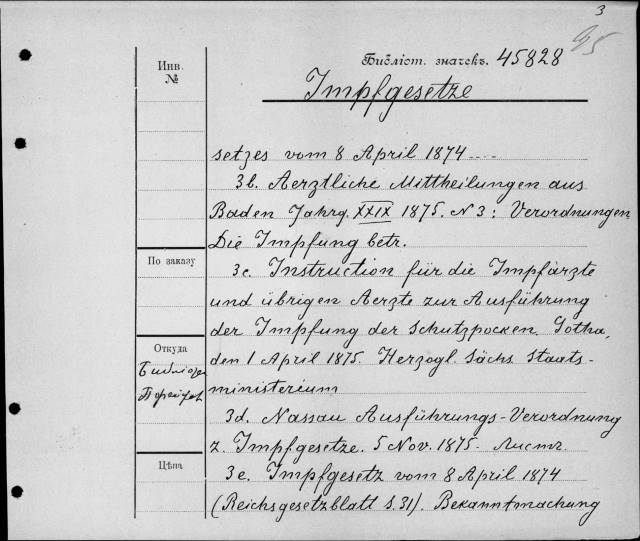 3
Библіот. значекъ. 45828
Impfgesetze
Инв.
№
setzes vom 8 April 1874 ....
3b. Aerztliche Mittheilungen aus
Baden Jahrg. XXIX 1875. N 3: Verordnungen
Die Impfung betr.
По заказу
3c. Instruction für die Impfärzte
und übrigen Aerzte zur Ausführung
der Impfung der Schutzpocken. Gotha,
Откуда
den 1 April 1875. Herzogl. Sächs Staats-
ministerium
3d. Nassau Ausführungs-Verordnung
z. Impfgesetze. 5 Nov. 1875. Листк.
Цѣна
3e. Impfgesetz vom 8 April 1874
(Reichsgesetzblatt S. 31). Bekanntmachung